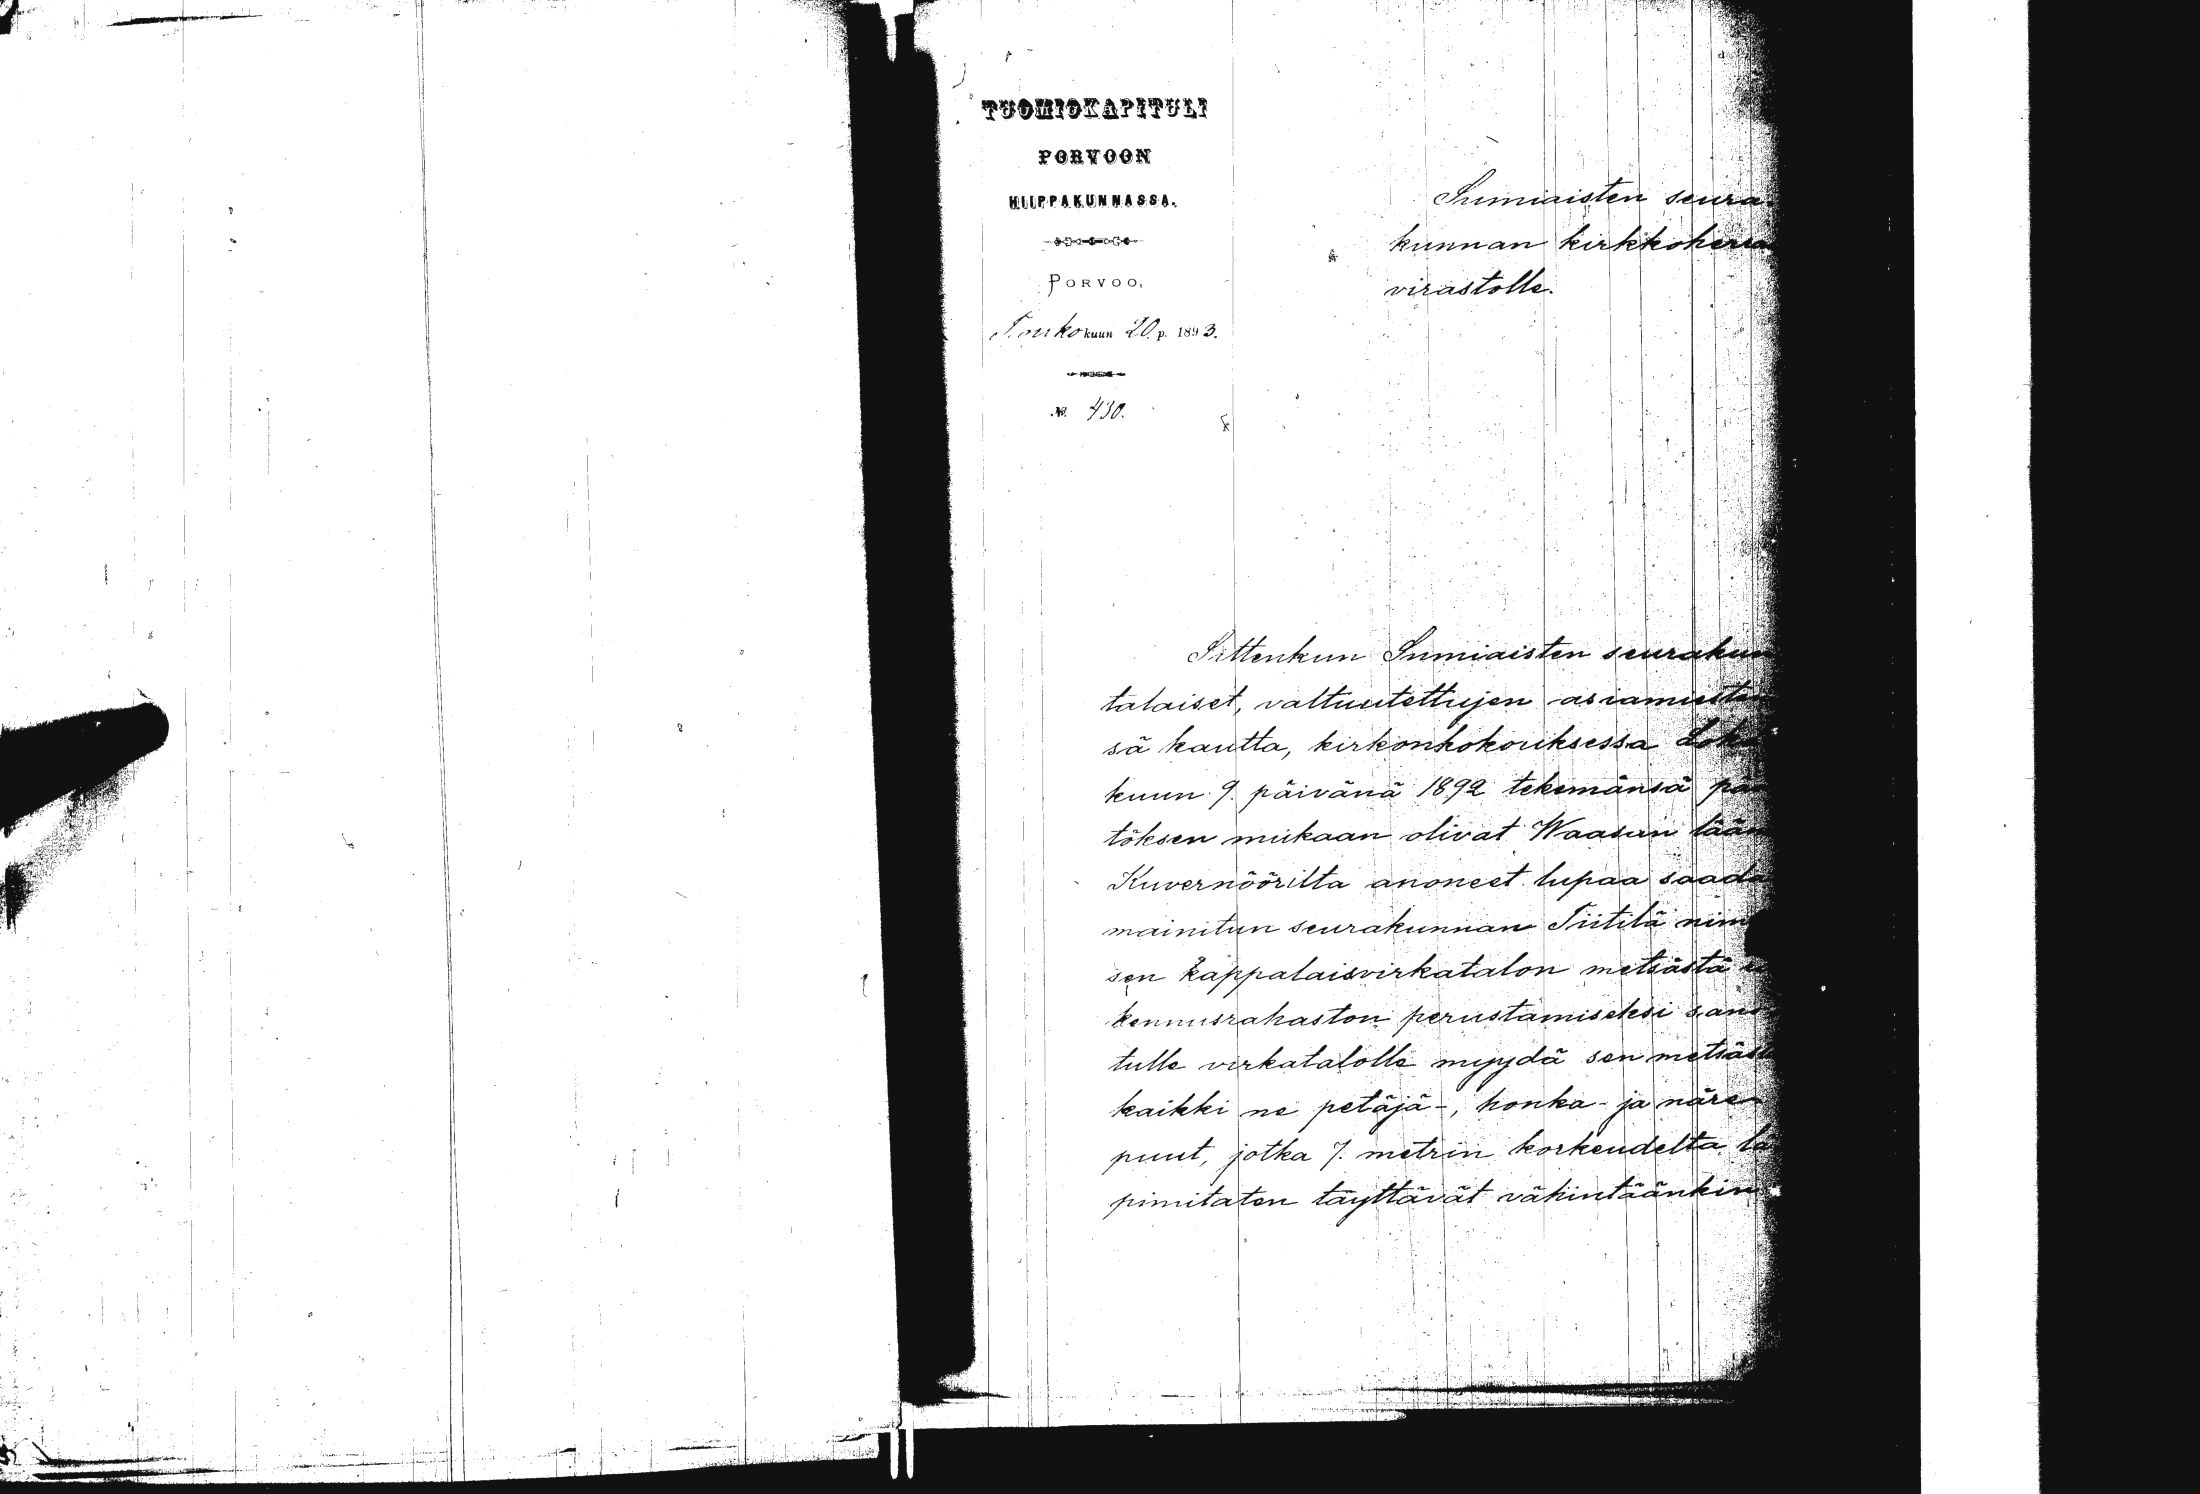 TUOMIOKAPITULI
PORVOON
HIIPPAKUNNASSA.
PORVOO,
Toukokuun 20 p. 1893.
№ 430.
Sumiaisten seura-
kunnan kirkkoherra
virastolle.
Sittenkun Sumiaisten seurakun
talaiset, valtuutettujen asiamiesten
sä kautta, kirkonkokouksessa Loka
kuun 9. päivänä 1892 tekemänsä pää
töksen mukaan olivat Waasan lään
Kuvernööriltä anoneet lupaa saada
mainitun seurakunnan Tiitilä nimi
sen kappalaisvirkatalon metsästä
kennusrahaston perustamiseksi sano
tulle virkatalolle myydä sen metsäst
kaikki ne petäjä-, honka- ja näre-
puut, jotka 7. metrin korkeudelta lä
pimitaten täyttävät vähintäänkin